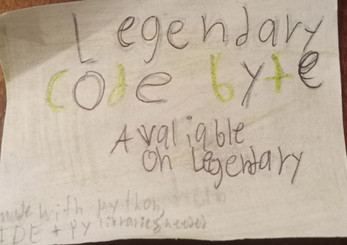 Legendary
CODE byte
Avaliable
On Legentary
made with python
IDE + Py libraries needed